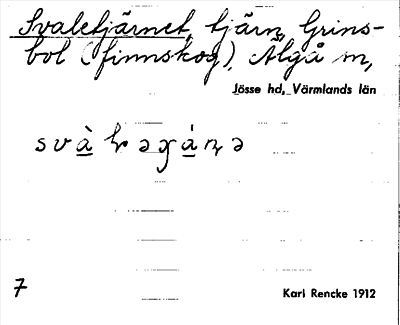 Svaletjärnet, tjärn, Grins-
bol (finnskog), Älgå sn,
Jösse hd, Värmlands län
7
Karl Rencke 1912